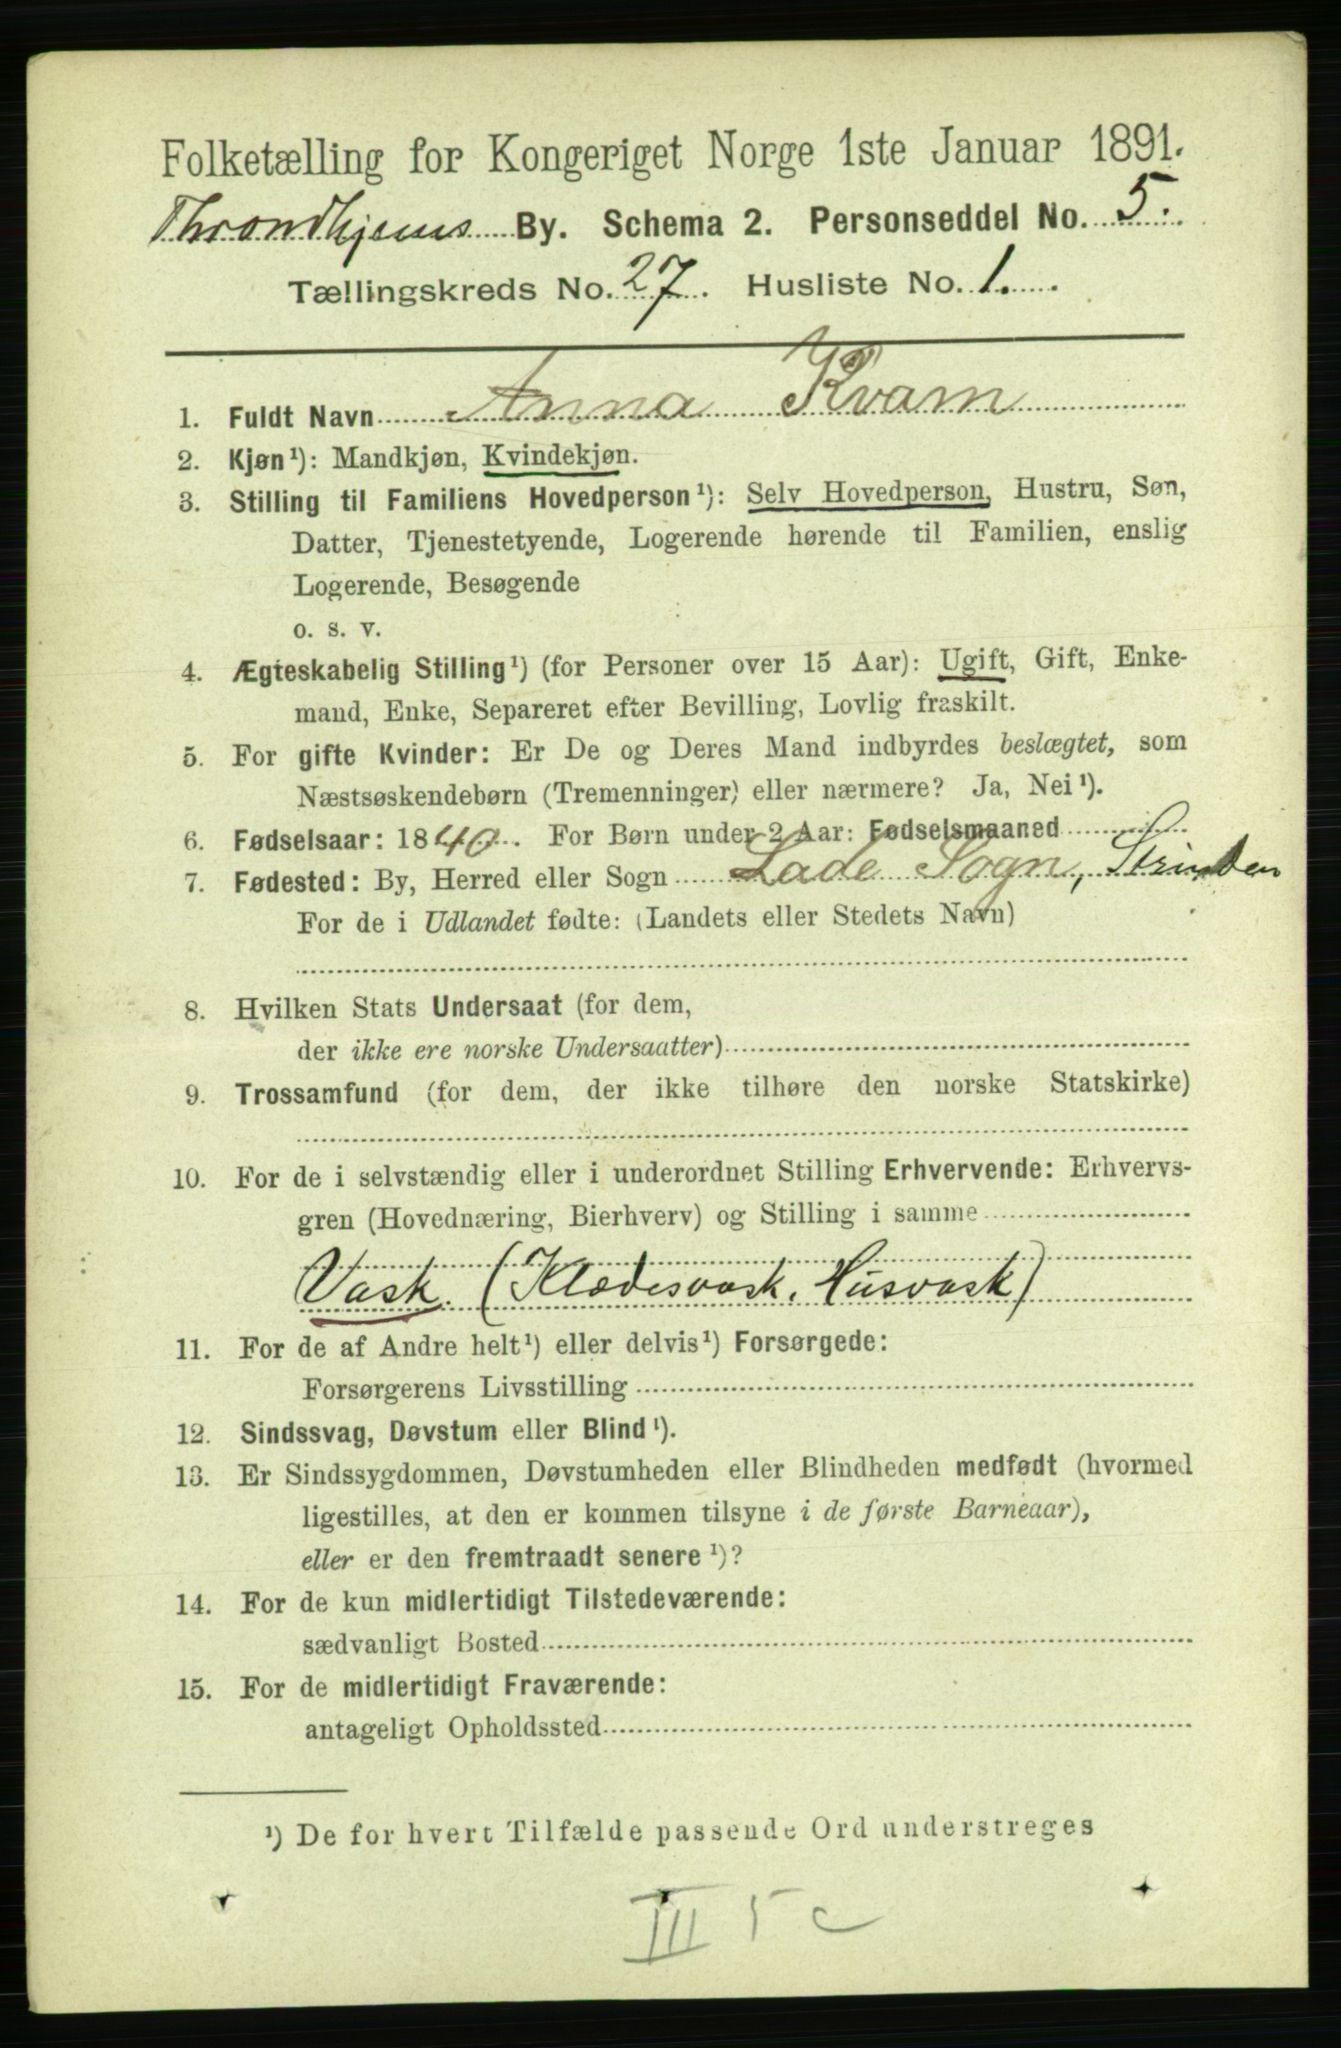 Folketælling for Kongeriget Norge 1ste Januar 1891.
Throndhjems By. Schema 2. Personseddel No. 5.
Tællingskreds No. 27. Husliste No. 1.
1. Fuldt Navn Anna Kvam
2. Kjøn¹): Mandkjøn, Kvindekjøn.
3. Stilling til Familiens Hovedperson¹): Selv Hovedperson, Hustru, Søn,
Datter, Tjenestetyende, Logerende hørende til Familien, enslig
Logerende, Besøgende
o. s. v.
4. Ægteskabelig Stilling¹) (for Personer over 15 Aar): Ugift, Gift, Enke-
mand, Enke, Separeret efter Bevilling, Lovlig fraskilt.
5. For gifte Kvinder: Er De og Deres Mand indbyrdes beslægtet, som
Næstsøskendebørn (Tremenninger) eller nærmere? Ja, Nei¹).
6. Fødselsaar: 1840. For Børn under 2 Aar: Fødselsmaaned
7. Fødested: By, Herred eller Sogn Lade Sogn, Strinden
For de i Udlandet fødte: (Landets eller Stedets Navn)
8. Hvilken Stats Undersaat (for dem,
der ikke ere norske Undersaatter)
9. Trossamfund (for dem, der ikke tilhøre den norske Statskirke)
10. For de i selvstændig eller i underordnet Stilling Erhvervende: Erhvervs-
gren (Hovednæring, Bierhverv) og Stilling i samme
Vask. (Klædesvask, Husvask)
11. For de af Andre helt¹) eller delvis¹) Forsørgede:
Forsørgerens Livsstilling
12. Sindssvag, Døvstum eller Blind¹).
13. Er Sindssygdommen, Døvstumheden eller Blindheden medfødt (hvormed
ligestilles, at den er kommen tilsyne i de første Barneaar),
eller er den fremtraadt senere¹)?
14. For de kun midlertidigt Tilstedeværende:
sædvanligt Bosted
15. For de midlertidigt Fraværende:
antageligt Opholdssted
¹) De for hvert Tilfælde passende Ord understreges
III 5 c